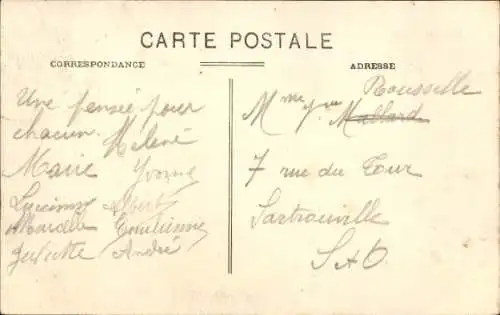 CARTE POSTALE
CORRESPONDANCE
Une pensée pour
chacun. Hélène
Marie Yvonne
Lucienne Albert
Marcelle Emilienne
Juliette André
ADRESSE
Rousselle
Mme Yve Mallard
7 rue du Tour
Sartrouville
S & O.